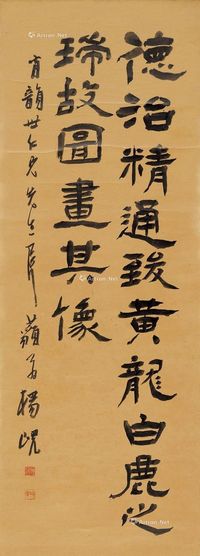 德治精通致黃龍白鹿之
瑞故圖畫其像
肯韻世仁兄先生屬 藐翁楊峴